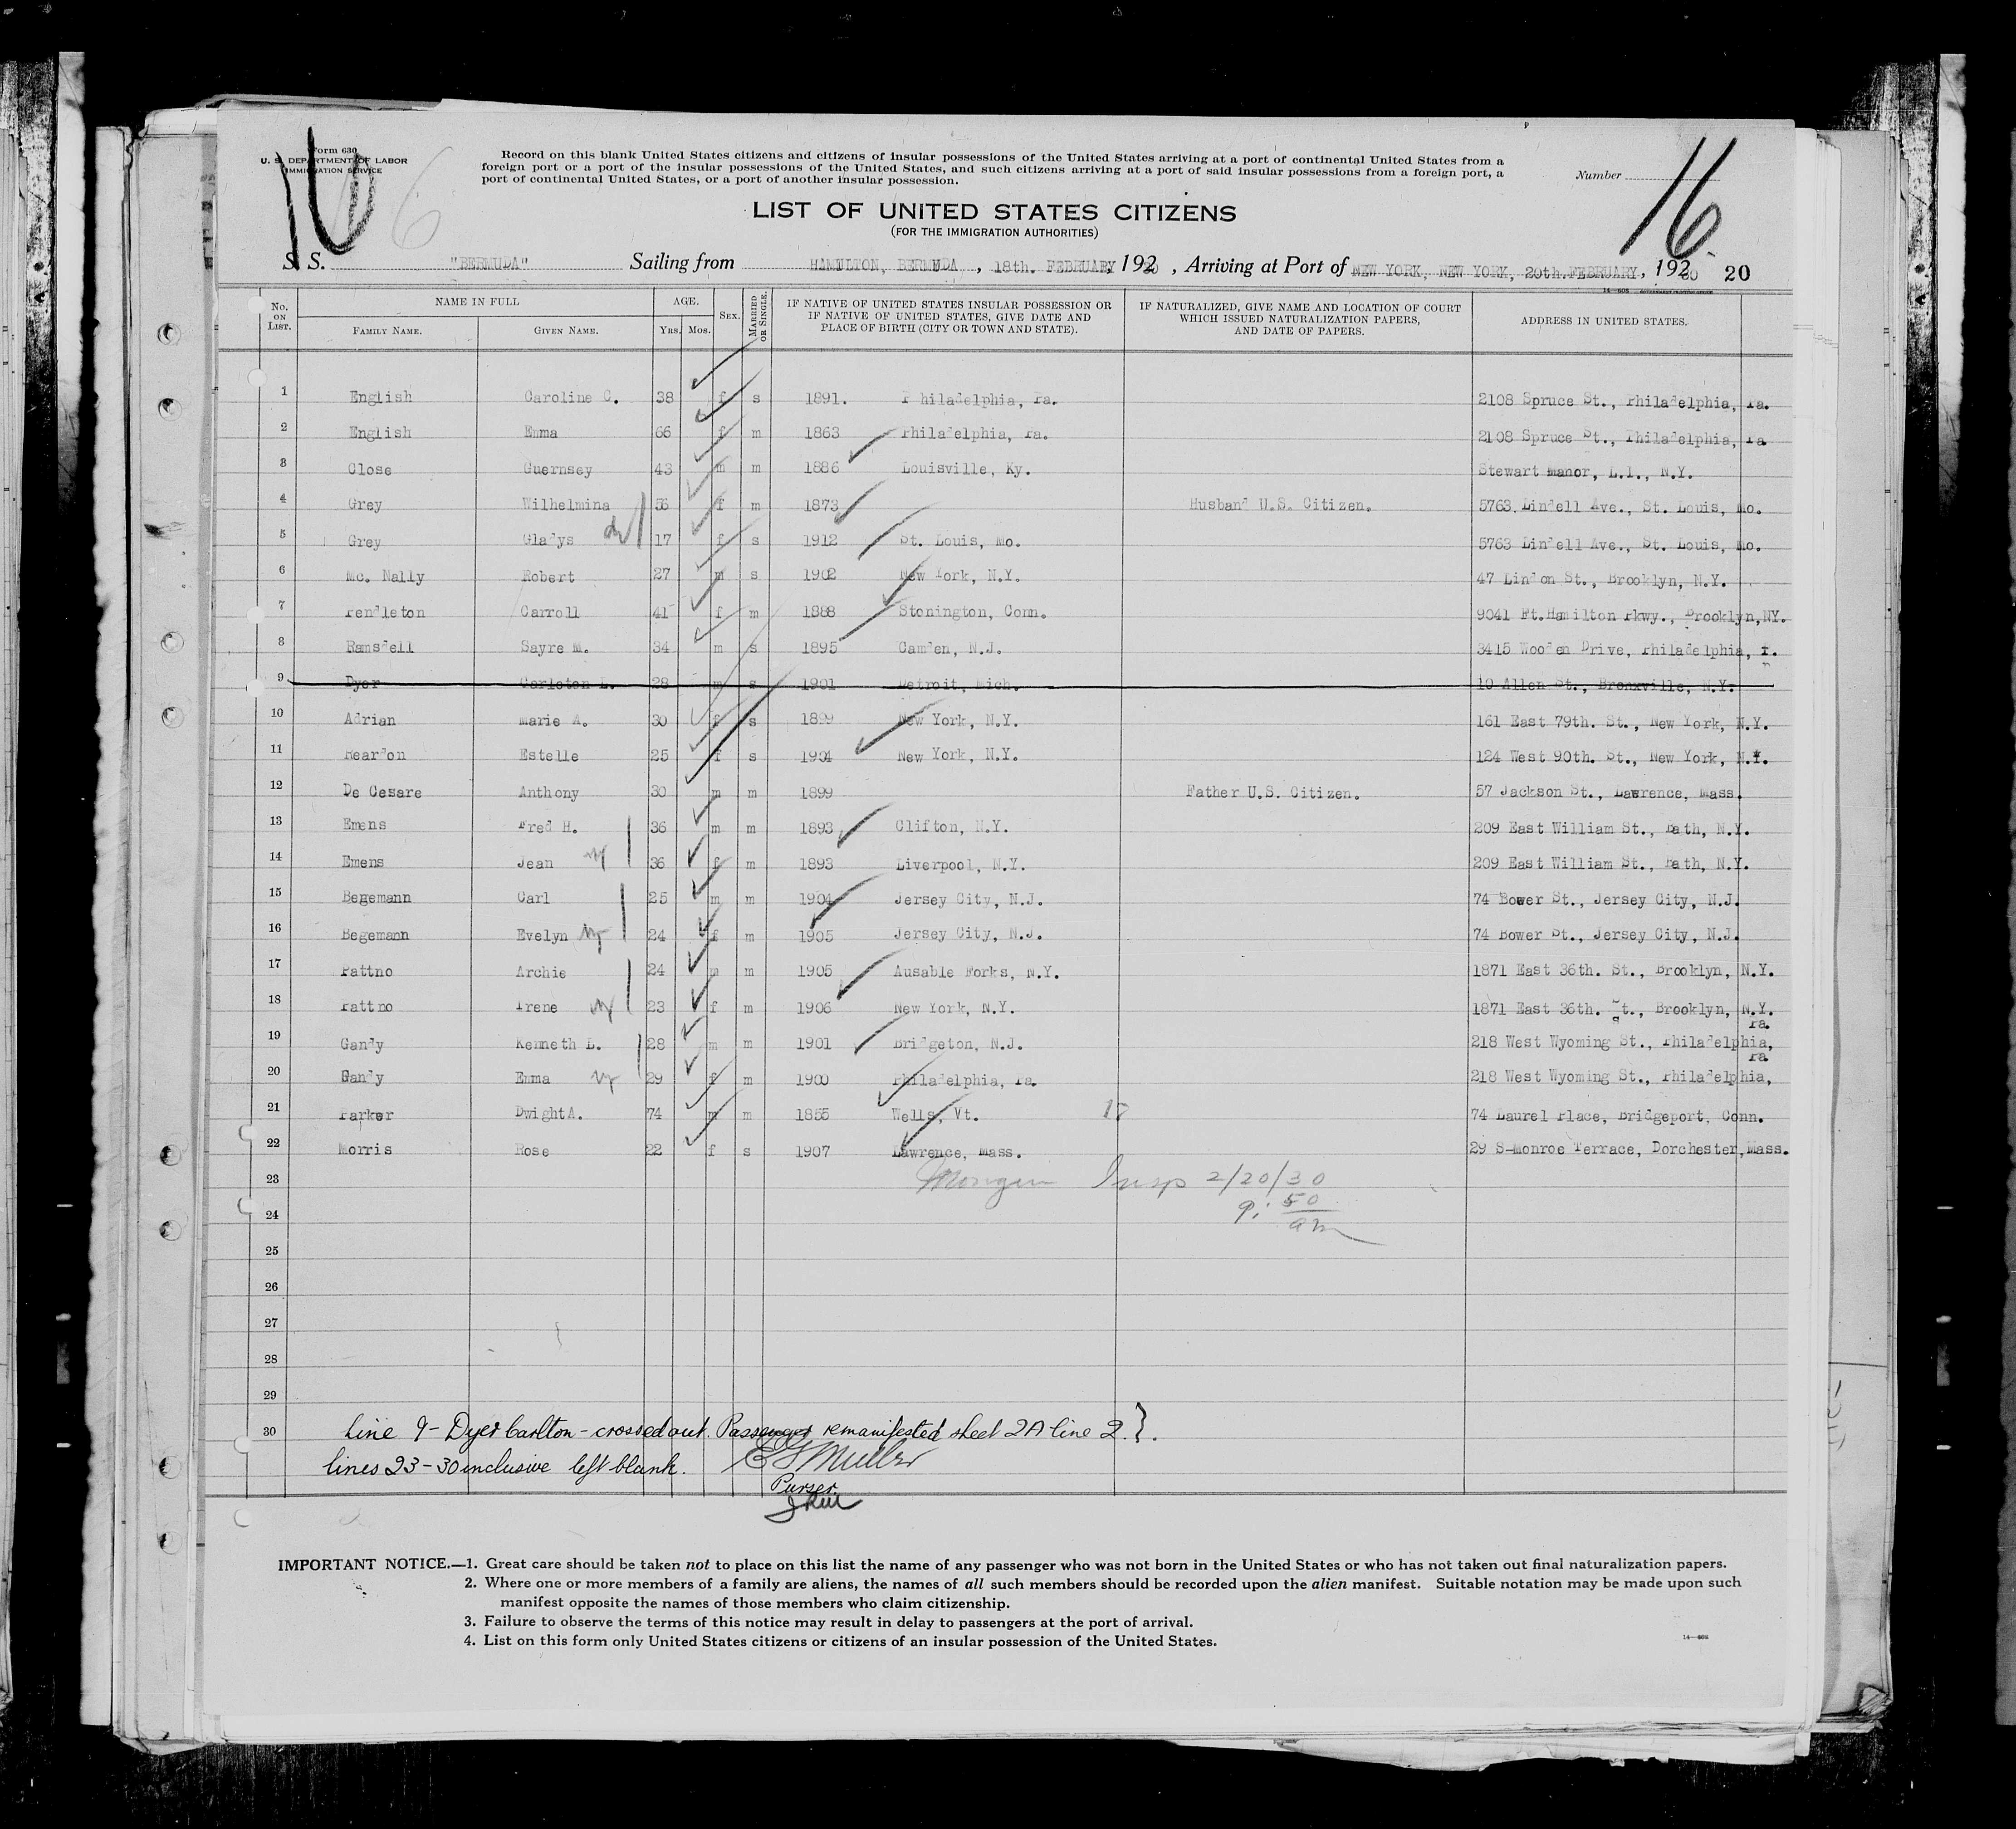 Form 630
U. S. DEPARTMENT OF LABOR
IMMIGRATION SERVICE
16
6
Record on this blank United States citizens and citizens of insular possessions of the United States arriving at a port of continental United States from a
foreign port or a port of the insular possessions of the United States, and such citizens arriving at a port of said insular possessions from a foreign port, a
port of continental United States, or a port of another insular possession.
Number
16
LIST OF UNITED STATES CITIZENS
(FOR THE IMMIGRATION AUTHORITIES)
S. S. "BERMUDA" Sailing from HAMILTON, BERMUDA, 18th. FEBRUARY, 192 30, Arriving at Port of NEW YORK, NEW YORK, 20th. FEBRUARY, 192 30 20
No. ON LIST. NAME IN FULL FAMILY NAME. GIVEN NAME. AGE. Yrs. Mos. SEX. MARRIED OR SINGLE. IF NATIVE OF UNITED STATES INSULAR POSSESSION OR IF NATIVE OF UNITED STATES, GIVE DATE AND PLACE OF BIRTH (CITY OR TOWN AND STATE). IF NATURALIZED, GIVE NAME AND LOCATION OF COURT WHICH ISSUED NATURALIZATION PAPERS, AND DATE OF PAPERS. ADDRESS IN UNITED STATES.
1 English Caroline C. 38 f s 1891. Philadelphia, Pa. 2108 Spruce St., Philadelphia, Pa.
2 English Emma 66 f m 1863 Philadelphia, Pa. 2108 Spruce St., Philadelphia, Pa
3 Close Guernsey 43 m m 1886 Louisville, Ky. Stewart Manor, L.I., N.Y.
4 Grey Wilhelmina 56 f m 1873 Husband U.S. Citizen. 5763 Lindell Ave., St. Louis, Mo.
5 Grey Gladys 17 f s 1912 St. Louis, Mo. 5763 Lindell Ave., St. Louis, Mo.
6 Mc. Nally Robert 27 m s 1902 New York, N.Y. 47 Lindon St., Brooklyn, N.Y.
7 Pendleton Carroll 41 f m 1888 Stonington, Conn. 9041 Ft.Hamilton Pkwy., Brooklyn,NY.
8 Ramsdell Sayre M. 34 m s 1895 Camden, N.J. 3415 Wooden Drive, Philadelphia, P.
9 Dyer Carleton L. 28 m s 1901 Detroit, Mich. 10 Allen St., Bronxville, N.Y.
10 Adrian Marie A. 30 f s 1899 New York, N.Y. 161 East 79th. St., New York, N.Y.
11 Reardon Estelle 25 f s 1904 New York, N.Y. 124 West 90th. St., New York, N.Y.
12 De Cesare Anthony 30 m m 1899 Father U.S. Citizen. 57 Jackson St., Lawrence, Mass.
13 Emens Fred H. 36 m m 1893 Clifton, N.Y. 209 East William St., Bath, N.Y.
14 Emens Jean 36 f m 1893 Liverpool, N.Y. 209 East William St., Bath, N.Y.
15 Begemann Carl 25 m m 1904 Jersey City, N.J. 74 Bower St., Jersey City, N.J.
16 Begemann Evelyn 24 f m 1905 Jersey City, N.J. 74 Bower St., Jersey City, N.J.
17 Pattno Archie 24 m m 1905 Ausable Forks, N.Y. 1871 East 36th. St., Brooklyn, N.Y.
18 Pattno Irene 23 f m 1906 New York, N.Y. 1871 East 36th. St., Brooklyn, N.Y.
19 Gandy Kenneth L. 28 m m 1901 Bridgeton, N.J. 218 West Wyoming St., Philadelphia, Pa.
20 Gandy Emma 29 f m 1900 Philadelphia, Pa. 218 West Wyoming St., Philadelphia, Pa
21 Parker DwightA. 74 m m 1855 Wells, Vt. 17 74 Laurel Place, Bridgeport, Conn.
22 Morris Rose 22 f s 1907 Lawrence, Mass. 29 S-Monroe Terrace, Dorchester,Mass.
23 Insp 2/20/30
24 9:50 am
25
26
27
28
29
30 Line 9 - Dyer Carlton - crossed out. Passenger remanifested sheet 2A line 2.}.
lines 23 - 30 inclusive left blank. E G Muller
Purser
IMPORTANT NOTICE.—1. Great care should be taken not to place on this list the name of any passenger who was not born in the United States or who has not taken out final naturalization papers.
2. Where one or more members of a family are aliens, the names of all such members should be recorded upon the alien manifest. Suitable notation may be made upon such
manifest opposite the names of those members who claim citizenship.
3. Failure to observe the terms of this notice may result in delay to passengers at the port of arrival.
4. List on this form only United States citizens or citizens of an insular possession of the United States.